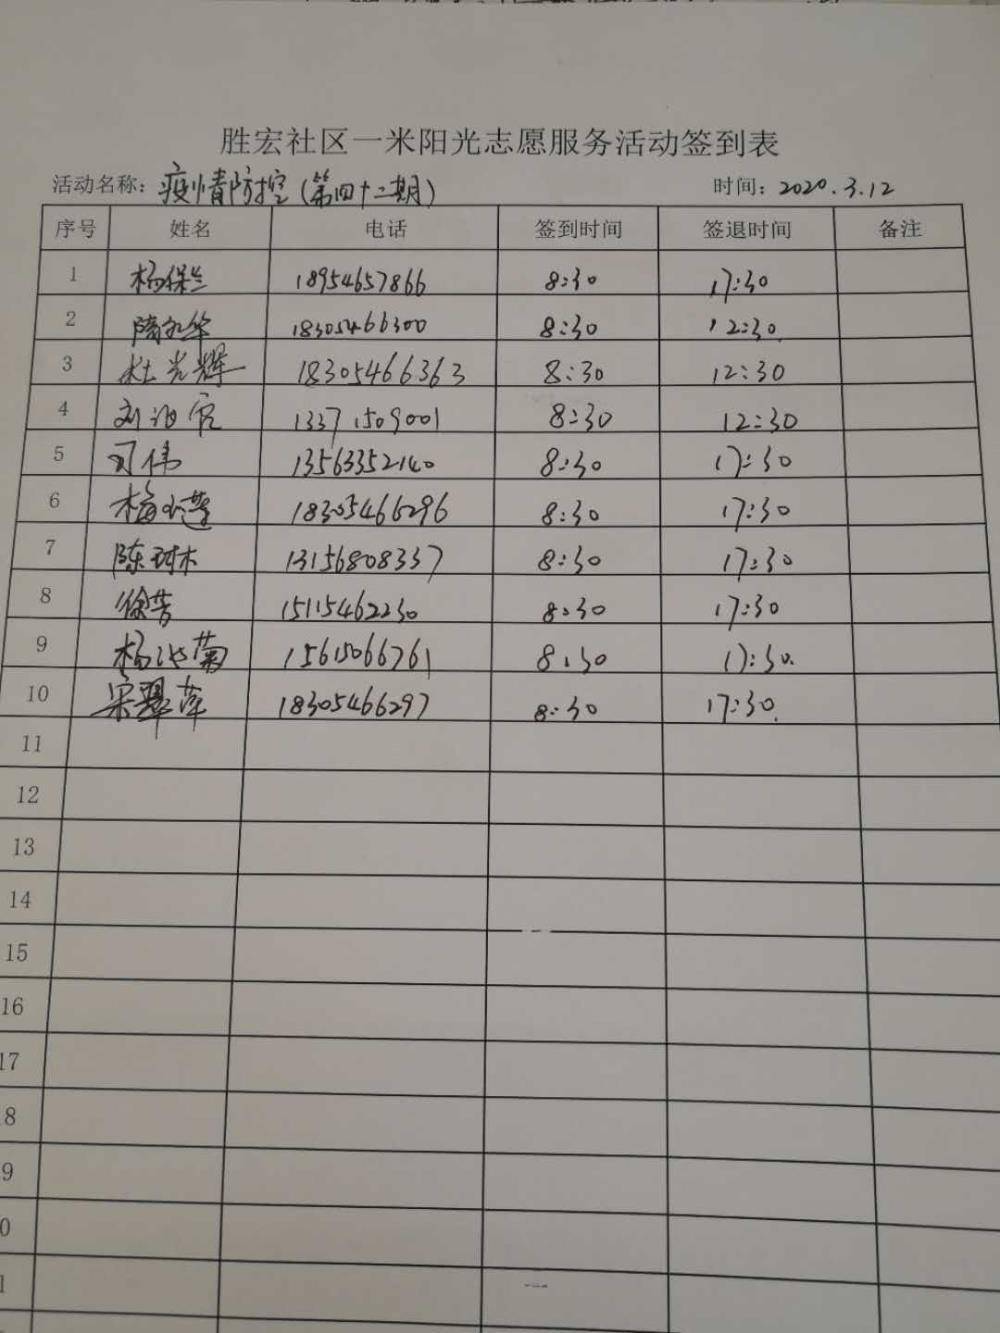 胜宏社区一米阳光志愿服务活动签到表
活动名称：疫情防控（第四十二期） 时间：2020.3.12
序号 姓名 电话 签到时间 签退时间 备注
1 杨保兰 18954657866 8:30 17:30
2 隋 华 18305466300 8:30 12:30
3 杜光辉 18305466363 8:30 12:30
4 刘 13371509001 8:30 12:30
5 司伟 13563352140 8:30 17:30
6 梅 莲 18305466296 8:30 17:30
7 陈 13156808337 8:30 17:30
8 徐芳 15115462230 8:30 17:30
9 杨 菊 15615066761 8:30 17:30
10 宋翠萍 18305466297 8:30 17:30
11
12
13
14
15
16
17
8
9
0
1